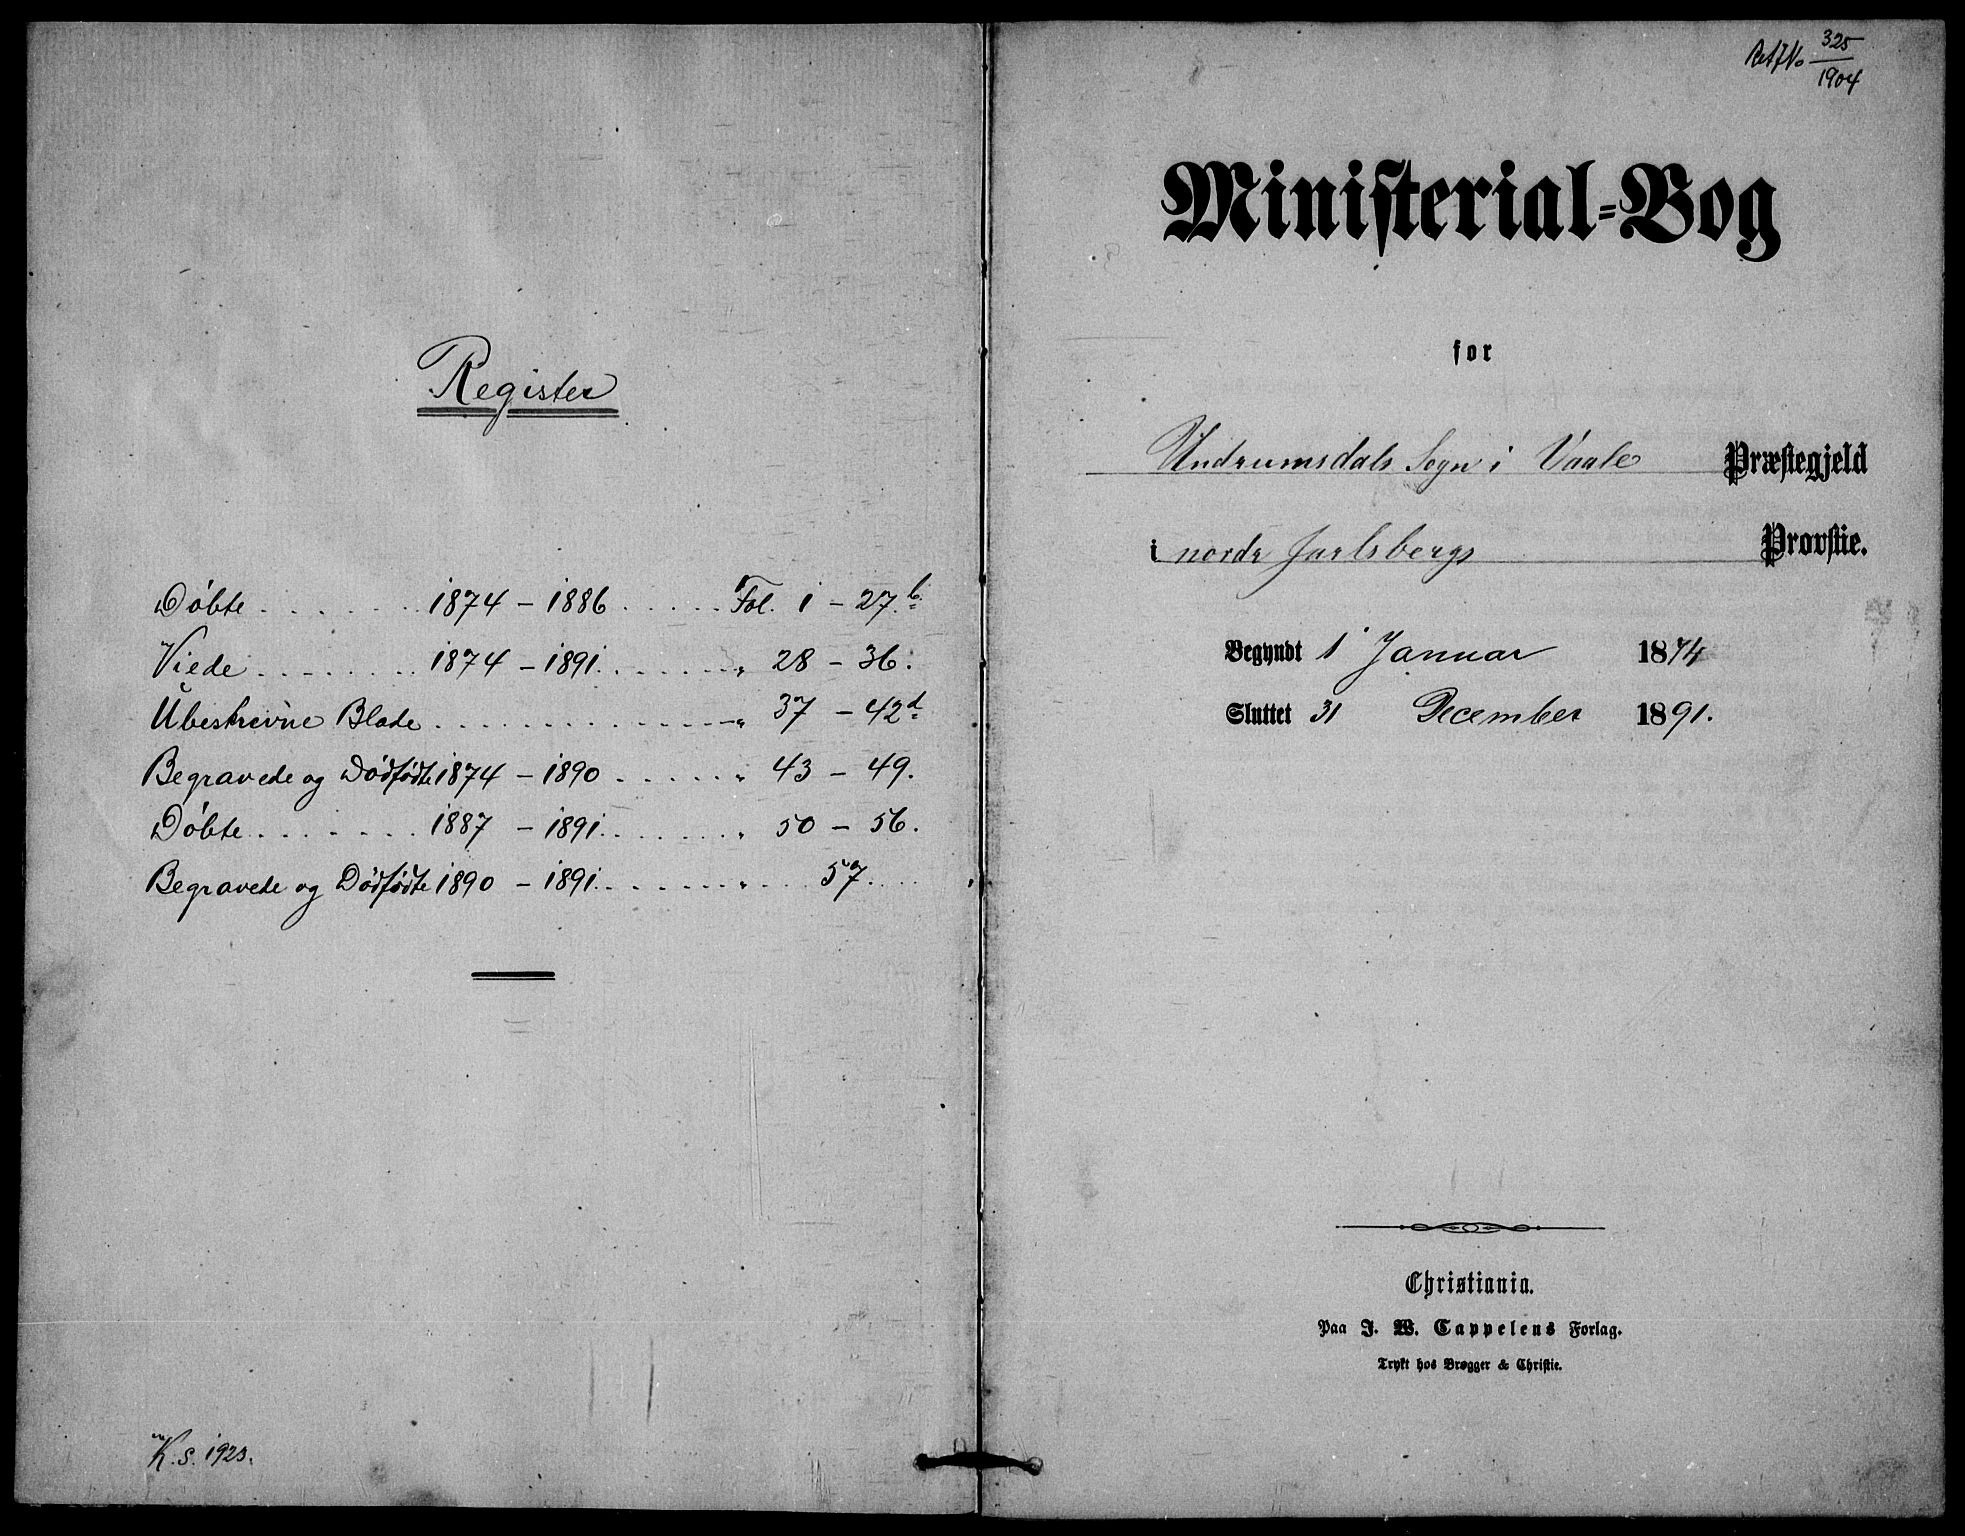 Register
Döbte . . . . . . . 1874 – 1886 . . . . . Fol. 1 – 27.b
Viede . . . . . . . 1874 – 1891 . . . . . . „ 28 – 36.
Ubeskrevne Blade . . . . . . . . . . . . . „ 37 – 42d
Begravede og Dødfødte 1874 – 1890 . . . . . „ 43 – 49.
Döbte . . . . . . . 1887 – 1891 . . . . . . „ 50 – 56.
Begravede og Dødfødte 1890 – 1891 . . . . . . „ . . . 57 . . .
K. S. 1923.
325
1904
Ministerial-Bog
for
Undrumsdals Sogn i Vaale Præstegjeld
i nordr Jarlsbergs Provstie.
Begyndt 1 Januar 1874
Sluttet 31 December 1891.
Christiania.
Paa J. W. Cappelens Forlag.
Trykt hos Brøgger & Christie.